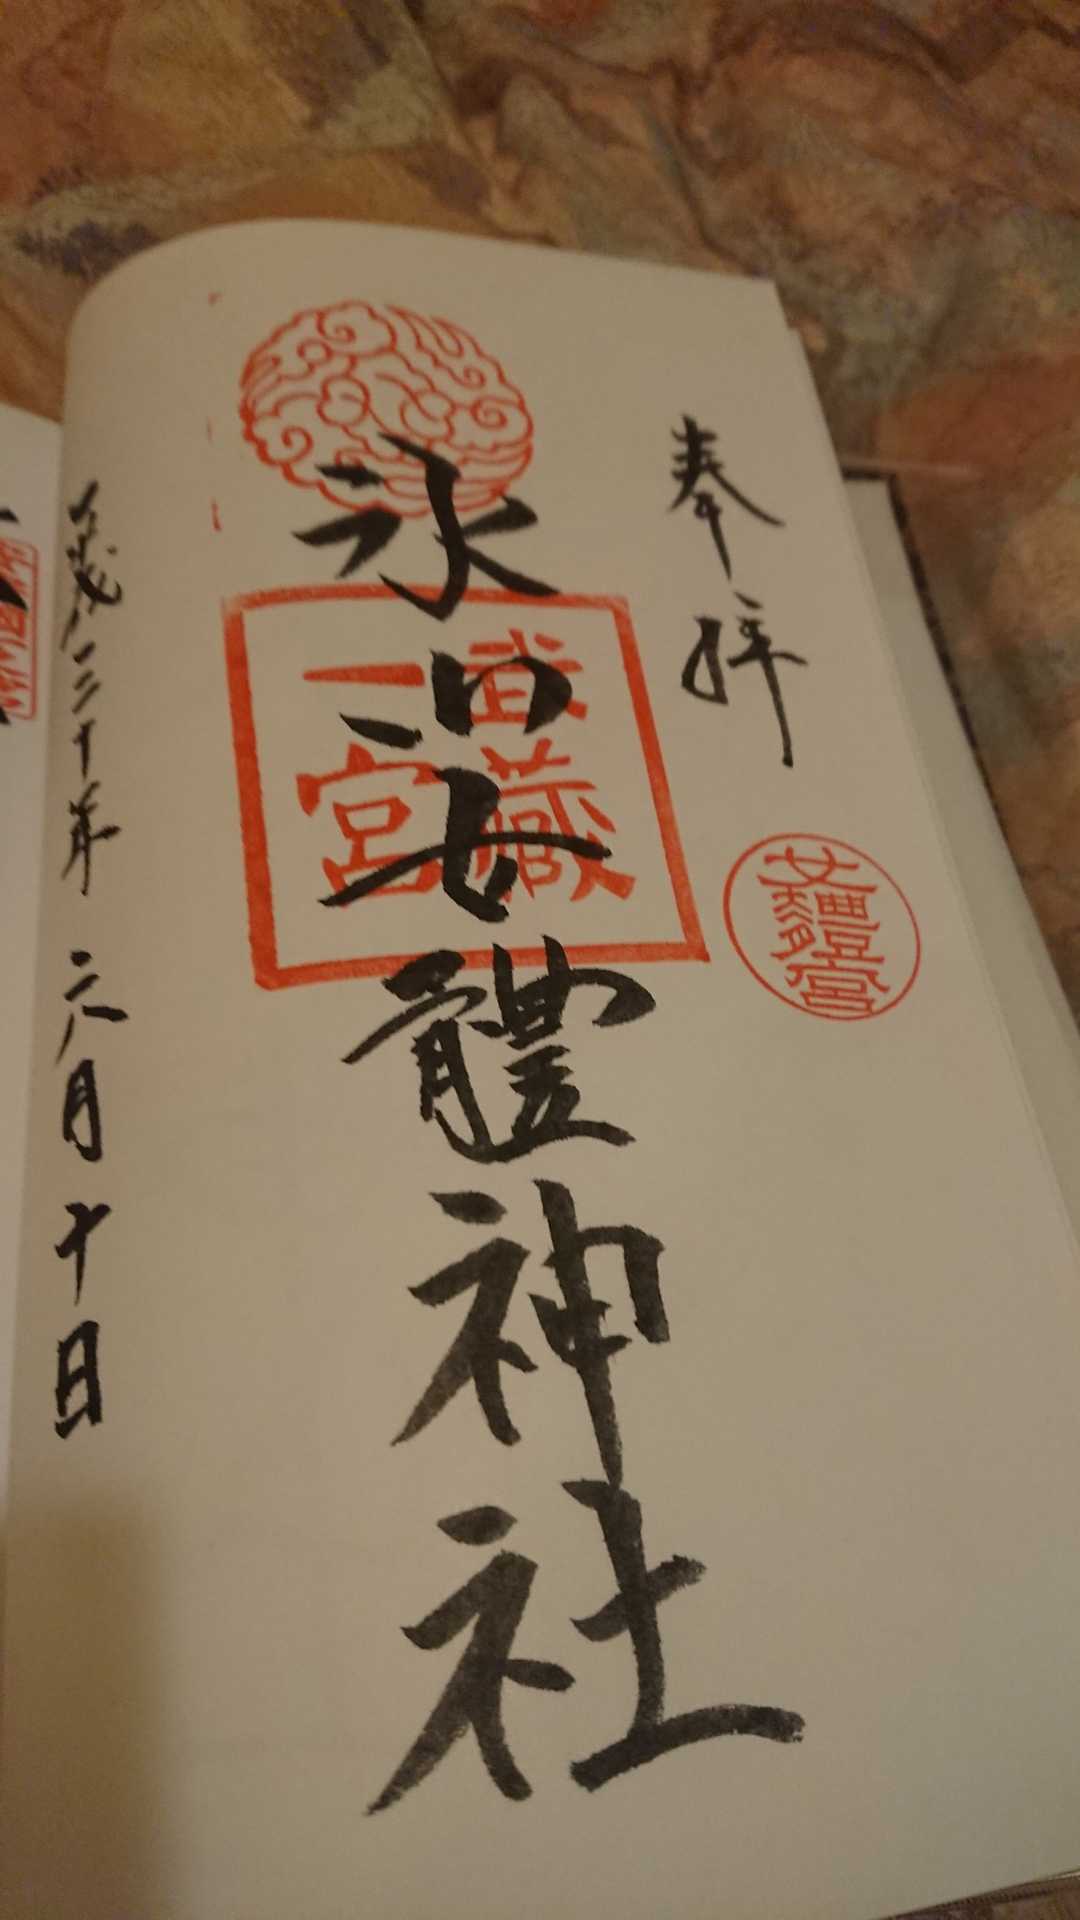 奉拝
武蔵
一宮
女躰宮
氷川女體神社
平成三十年 六月十日